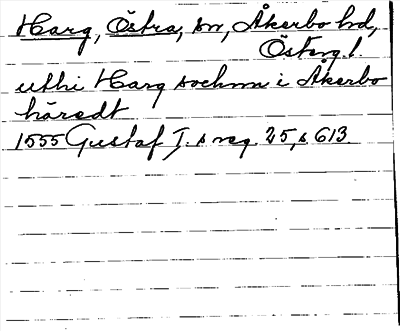 Harg, Östra, sn, Åkerbo hd,
Östergl.
uthi Harg sochnn i Åkerbo
häredt
1555 Gustaf I. s reg. 25, s 613.